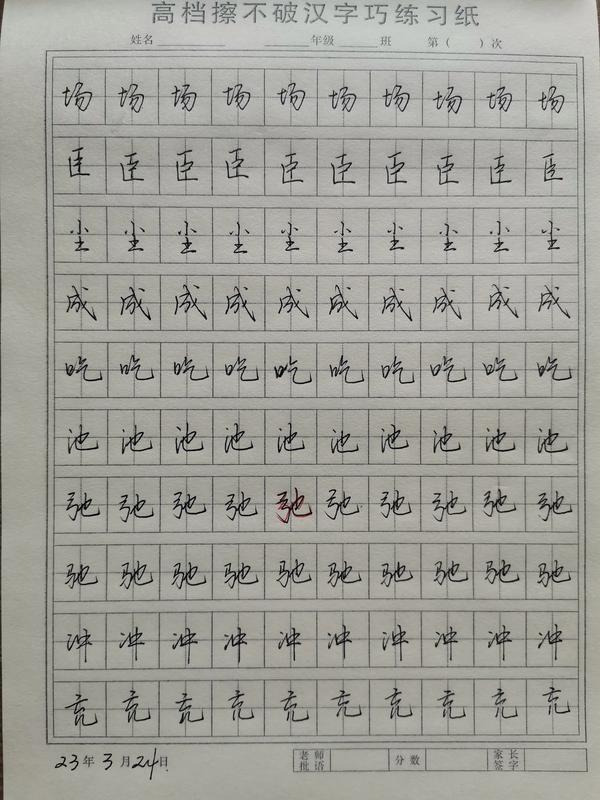 高档擦不破汉字巧练习纸
姓名 年级 班 第( )次
场 场 场 场 场 场 场 场 场 场
臣 臣 臣 臣 臣 臣 臣 臣 臣 臣
尘 尘 尘 尘 尘 尘 尘 尘 尘 尘
成 成 成 成 成 成 成 成 成 成
吃 吃 吃 吃 吃 吃 吃 吃 吃 吃
池 池 池 池 池 池 池 池 池 池
弛 弛 弛 弛 弛 弛 弛 弛 弛 弛
驰 驰 驰 驰 驰 驰 驰 驰 驰 驰
冲 冲 冲 冲 冲 冲 冲 冲 冲 冲
充 充 充 充 充 充 充 充 充 充
23年3月24日 老师批语 分数 家长签字